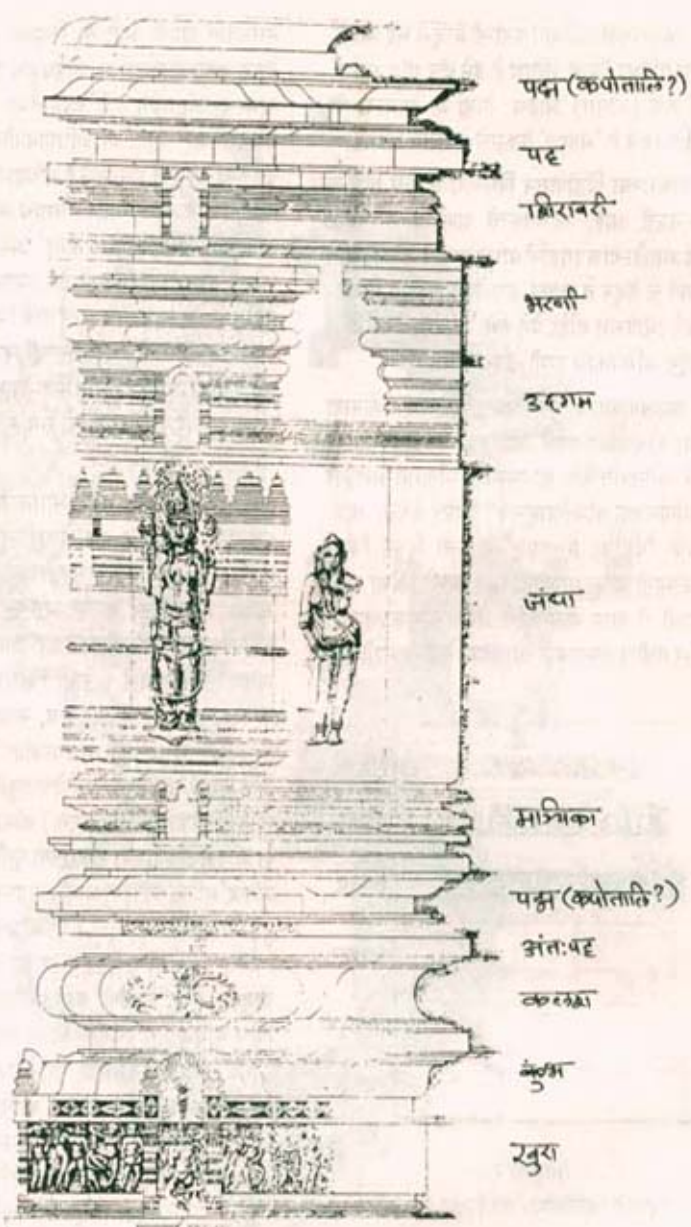 पद्म (कपोतालि?)
पट्ट
शिरावटी
भरणी
उद्गम
जंघा
मञ्चिका
पद्म (कपोतालि?)
अंतःपट्ट
कलश
कुंभ
खुरा